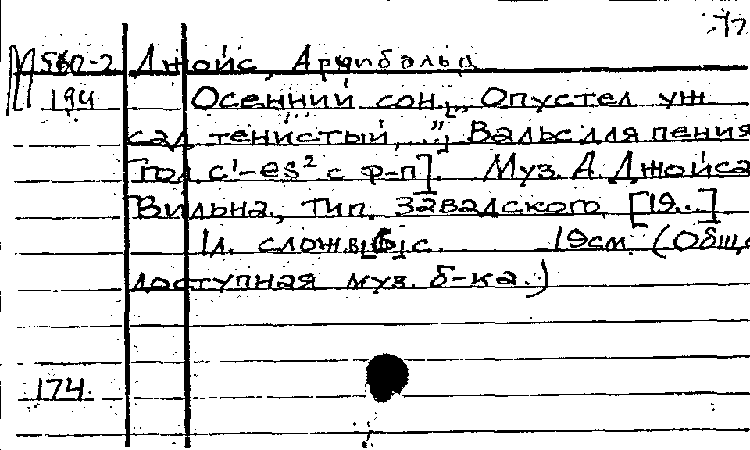 М 560-2 Джойс, Арчибальд
194 Осенний сон. „Опустел уж
сад тенистый,..." Вальс для пения
[гол. c¹-es² с ф-п]. Муз. А. Джойса
Вильна, тип. Завадского, [19..]
1 л. слож. в [6] с. 19 см. (Обще
доступная муз. б-ка.)
174